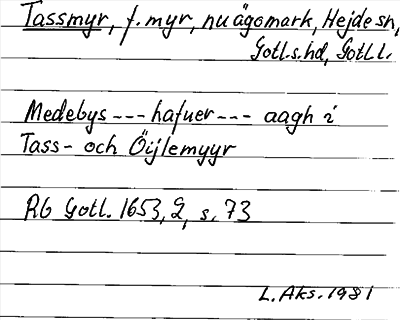 Tassmyr, f. myr, nu ägomark, Hejde sn,
Gotl.s.hd, Gotl.l.
Medebys --- hafuer --- aagh i
Tass- och Öijlemyyr
Rb Gotl. 1653, 2, s. 73
L. Aks. 1981